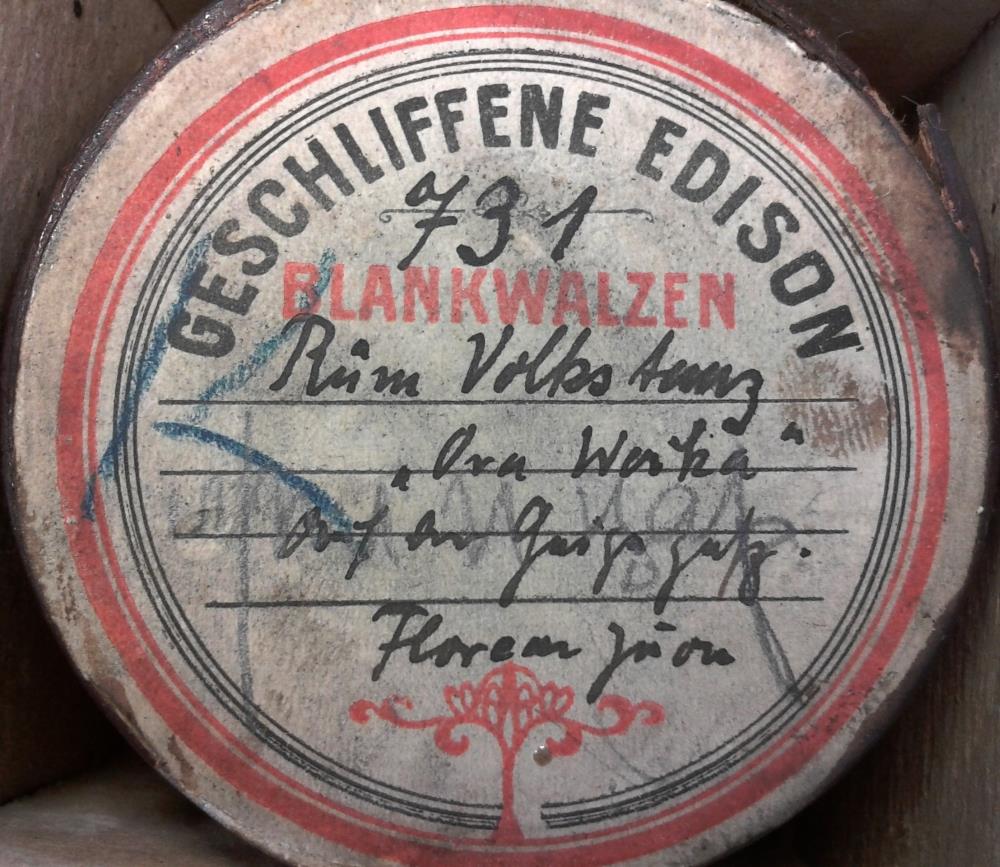 GESCHLIFFENE EDISON
731
BLANKWALZEN
Rŭm Volkstanz
„Ora Woika“
Auf der Geige gesp.
Florean Jŭon